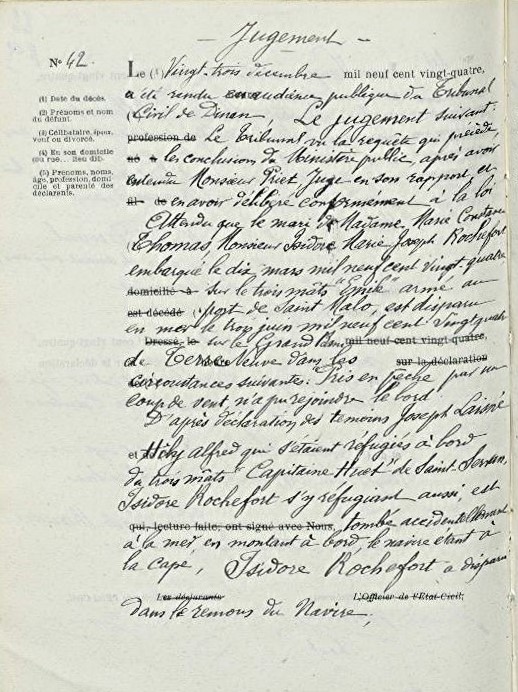 - Jugement -
N° 42
(1) Date du décès.
(2) Prénoms et nom
du défunt.
(3) Célibataire, époux,
veuf ou divorcé.
(4) En son domicile
(ou rue... lieu dit).
(5) Prénoms, noms,
âge, profession, domi-
cile et parenté des
déclarants.
Le (1) Vingt-trois décembre mil neuf cent vingt-quatre,
a été rendu en audience publique du Tribunal
Civil de Dinan, Le jugement suivant:
profession de Le Tribunal vu la requête qui précède
né à les conclusions du Ministère public, après avoir
entendu Monsieur Priet Juge en son rapport et
fil de en avoir délibéré conformément à la loi
Attendu que le mari de Madame Marie Constance
Thomas Monsieur Isidore Marie Joseph Rochefort
embarqué le dix mars mil neuf cent vingt quatre
domicilié à sur le trois mâts "Emile" armé au
est décédé port de Saint Malo, est disparu
en mer le trois juin mil neuf cent vingt quatre
Dressé, le sur le Grand Banc mil neuf cent vingt-quatre,
de Terre Neuve dans les sur la déclaration
circonstances suivantes: Pris en pêche par un
coup de vent n'a pu rejoindre le bord.
D'après déclaration des temoins Joseph
et Alfred qui s'étaient réfugiés à bord
du trois mâts "Capitaine Huet" de Saint Servan,
Isidore Rochefort s'y réfugiant aussi, est
qui, lecture faite, ont signé avec Nous, tombé accidentellement
à la mer, en montant à bord, le navire étant à
la cape, Isidore Rochefort a disparu
Les déclarants L'Officier de l'Etat-Civil,
dans le remous du Navire,